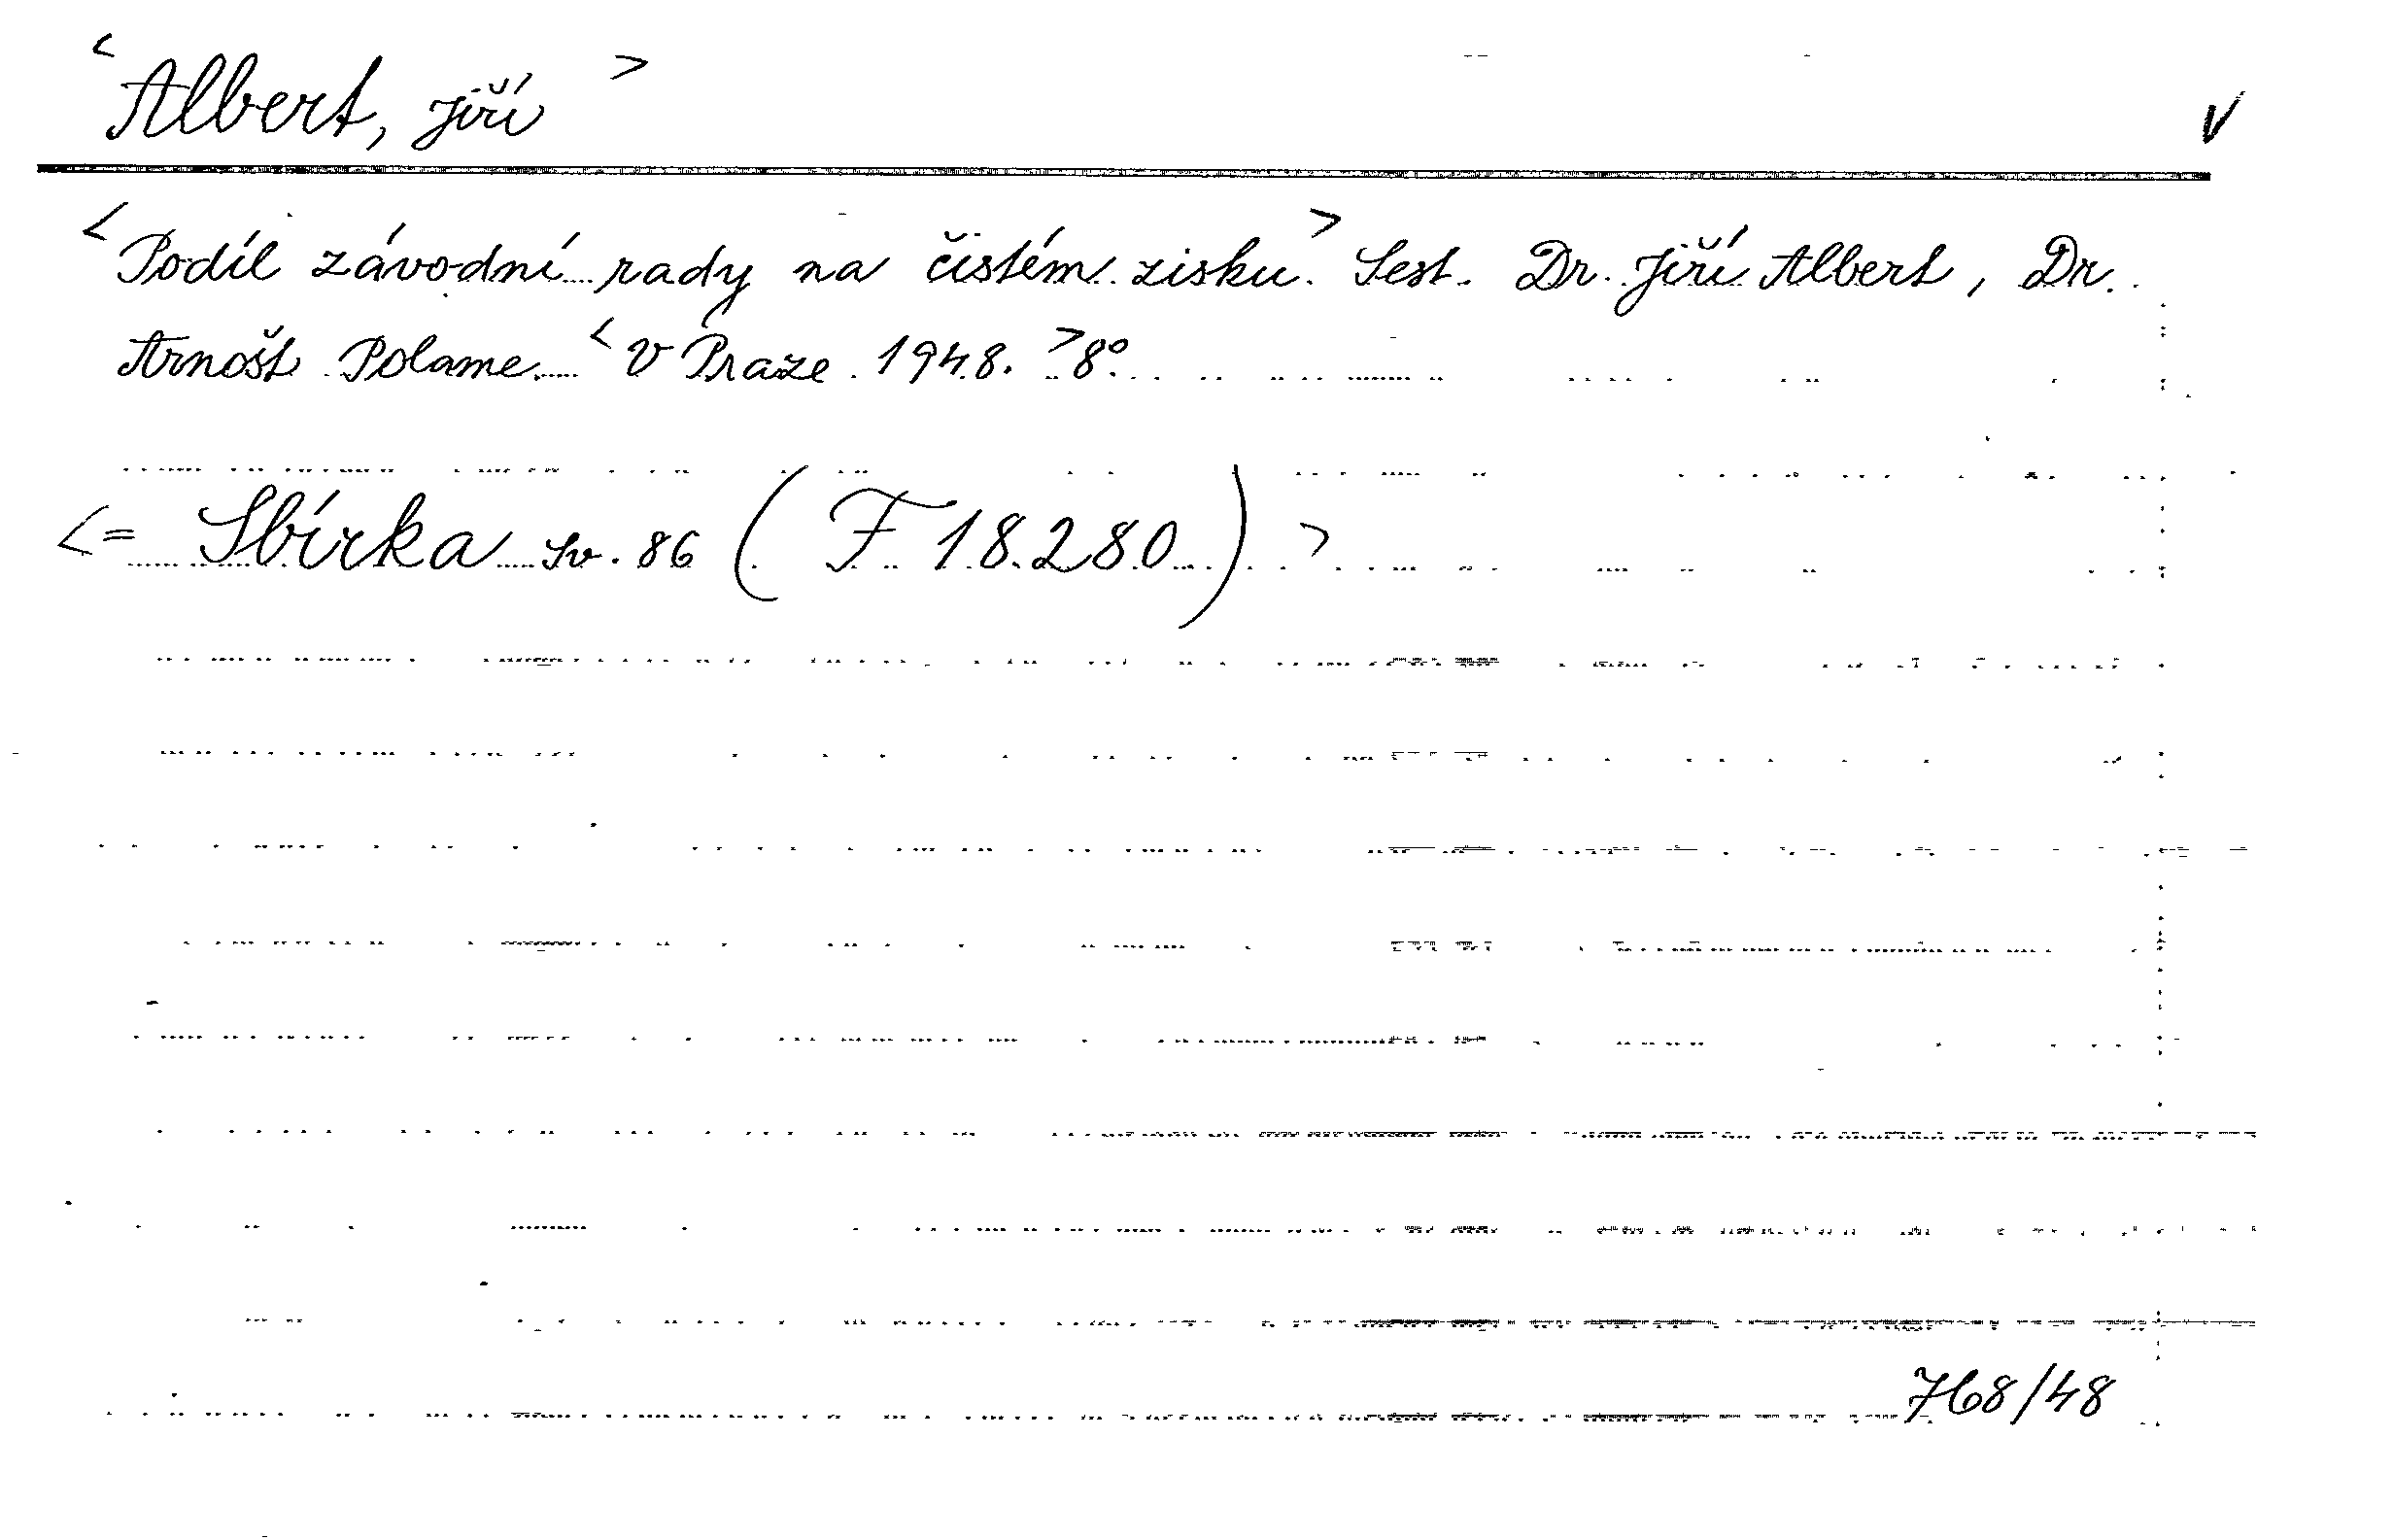 < Albert, Jiří > V
< Podíl závodní rady na čistém zisku. > Sest. Dr. Jiří Albert, Dr.
Arnošt Polame. < V Praze 1948. > 8°.
<= Sbírka sv. 86 ( F 18.280 ) >
768/48